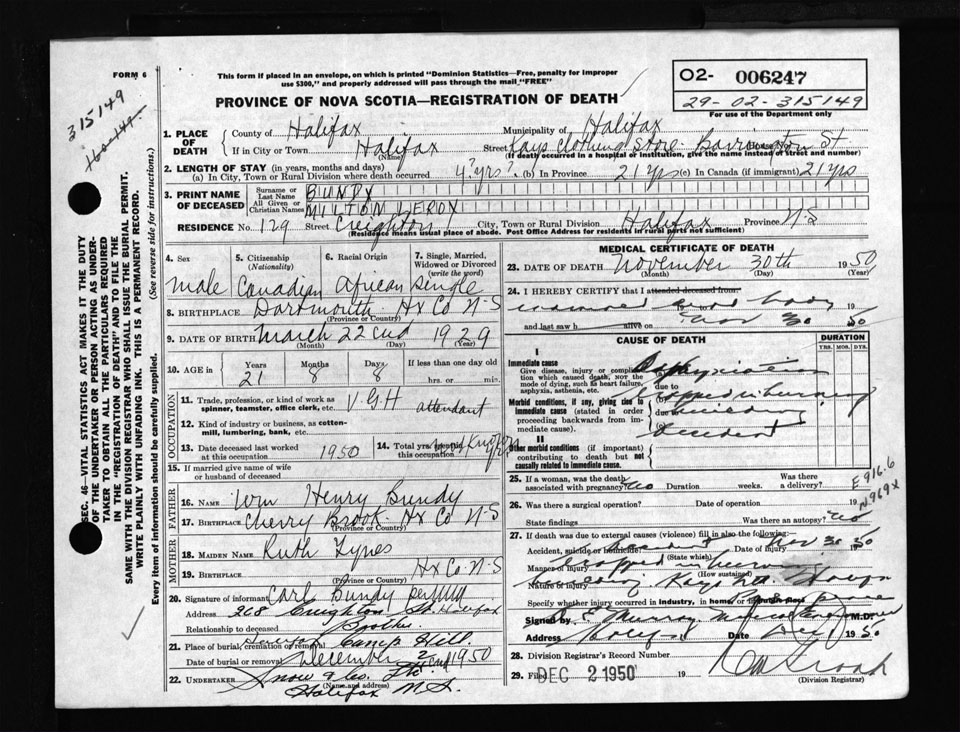 FORM 6
This form if placed in an envelope, on which is printed "Dominion Statistics—Free, penalty for improper
use $300," and properly addressed will pass through the mail "FREE"
PROVINCE OF NOVA SCOTIA—REGISTRATION OF DEATH
O2- 006247
29-02-315149
For use of the Department only
315149
SEC. 46—VITAL STATISTICS ACT MAKES IT THE DUTY
OF THE UNDERTAKER OR PERSON ACTING AS UNDER-
TAKER TO OBTAIN ALL THE PARTICULARS REQUIRED
IN THE "REGISTRATION OF DEATH" AND TO FILE THE
SAME WITH THE DIVISION REGISTRAR WHO SHALL ISSUE THE BURIAL PERMIT.
WRITE PLAINLY WITH UNFADING INK. THIS IS A PERMANENT RECORD.
Every item of information should be carefully supplied. (See reverse side for instructions.)
1. PLACE OF DEATH County of Halifax Municipality of Halifax
If in City or Town Halifax Street Kays Clothing Store Barrington St
(Name) (If death occurred in a hospital or institution, give the name instead of street and number)
2. LENGTH OF STAY (in years, months and days)
(a) In City, Town or Rural Division where death occurred 4? yrs? (b) In Province 21 yrs (c) In Canada (if immigrant) 21 yrs
3. PRINT NAME OF DECEASED Surname or Last Name BUNDY
All Given or Christian Names MILTON LEROY
RESIDENCE No. 129 Street Creighton City, Town or Rural Division Halifax Province N-S
(Residence means usual place of abode. Post Office Address for residents in rural parts not sufficient)
4. Sex 5. Citizenship (Nationality) 6. Racial Origin 7. Single, Married, Widowed or Divorced (write the word)
Male Canadian African Single
8. BIRTHPLACE Dartmouth Hx Co N-S
(Province or Country)
9. DATE OF BIRTH March 22nd 1929
(Month) (Day) (Year)
10. AGE IN Years Months Days If less than one day old
21 8 8 hrs. or min.
OCCUPATION
11. Trade, profession, or kind of work as spinner, teamster, office clerk, etc. V.G.H attendant
12. Kind of industry or business, as cotton-mill, lumbering, bank, etc.
13. Date deceased last worked at this occupation 1950
14. Total yrs. spent in this occupation
15. If married give name of wife or husband of deceased
FATHER
16. NAME Wm Henry Bundy
17. BIRTHPLACE Cherry Brook Hx Co N-S
(Province or Country)
MOTHER
18. MAIDEN NAME Ruth Tynes
19. BIRTHPLACE Hx Co. N-S
(Province or Country)
20. Signature of informant Carl Bundy per
Address 268 Creighton St. Halifax
Relationship to deceased Brother
21. Place of burial, cremation or removal Fairfax Camp Hill
Date of burial or removal December 2nd 1950
22. UNDERTAKER Snow & Co.
(Name and address) Halifax N.S.
MEDICAL CERTIFICATE OF DEATH
23. DATE OF DEATH November 30th 1950
(Month) (Day) (Year)
24. I HEREBY CERTIFY that I attended deceased from
body 19
and last saw h alive on Nov 30 50
CAUSE OF DEATH DURATION
YRS. MOS. DYS.
I
Immediate cause
Give disease, injury or complication which caused death, not the mode of dying, such as heart failure, asphyxia, asthenia, etc.
Asphyxiation
due to
Morbid conditions, if any, giving rise to immediate cause (stated in order proceeding backwards from immediate cause).
trapped in burning
due to building
Accident
II
Other morbid conditions (if important) contributing to death but not causally related to immediate cause.
25. If a woman, was the death associated with pregnancy? No Duration weeks. Was there a delivery?
E 916.6
N969X
26. Was there a surgical operation? Date of operation 19
State findings Was there an autopsy? No
27. If death was due to external causes (violence) fill in also the following:—
Accident, suicide or homicide? Accident Date of injury Nov 30 1950
(State which)
Manner of injury Trapped in burning
(How sustained)
Nature of injury building Kays Ltd.
Specify whether injury occurred in industry, in home or in public place
Signed by M.D.
Address Halifax Date Dec 1 1950
28. Division Registrar's Record Number
29. Filed DEC 2 1950 19
(Division Registrar)